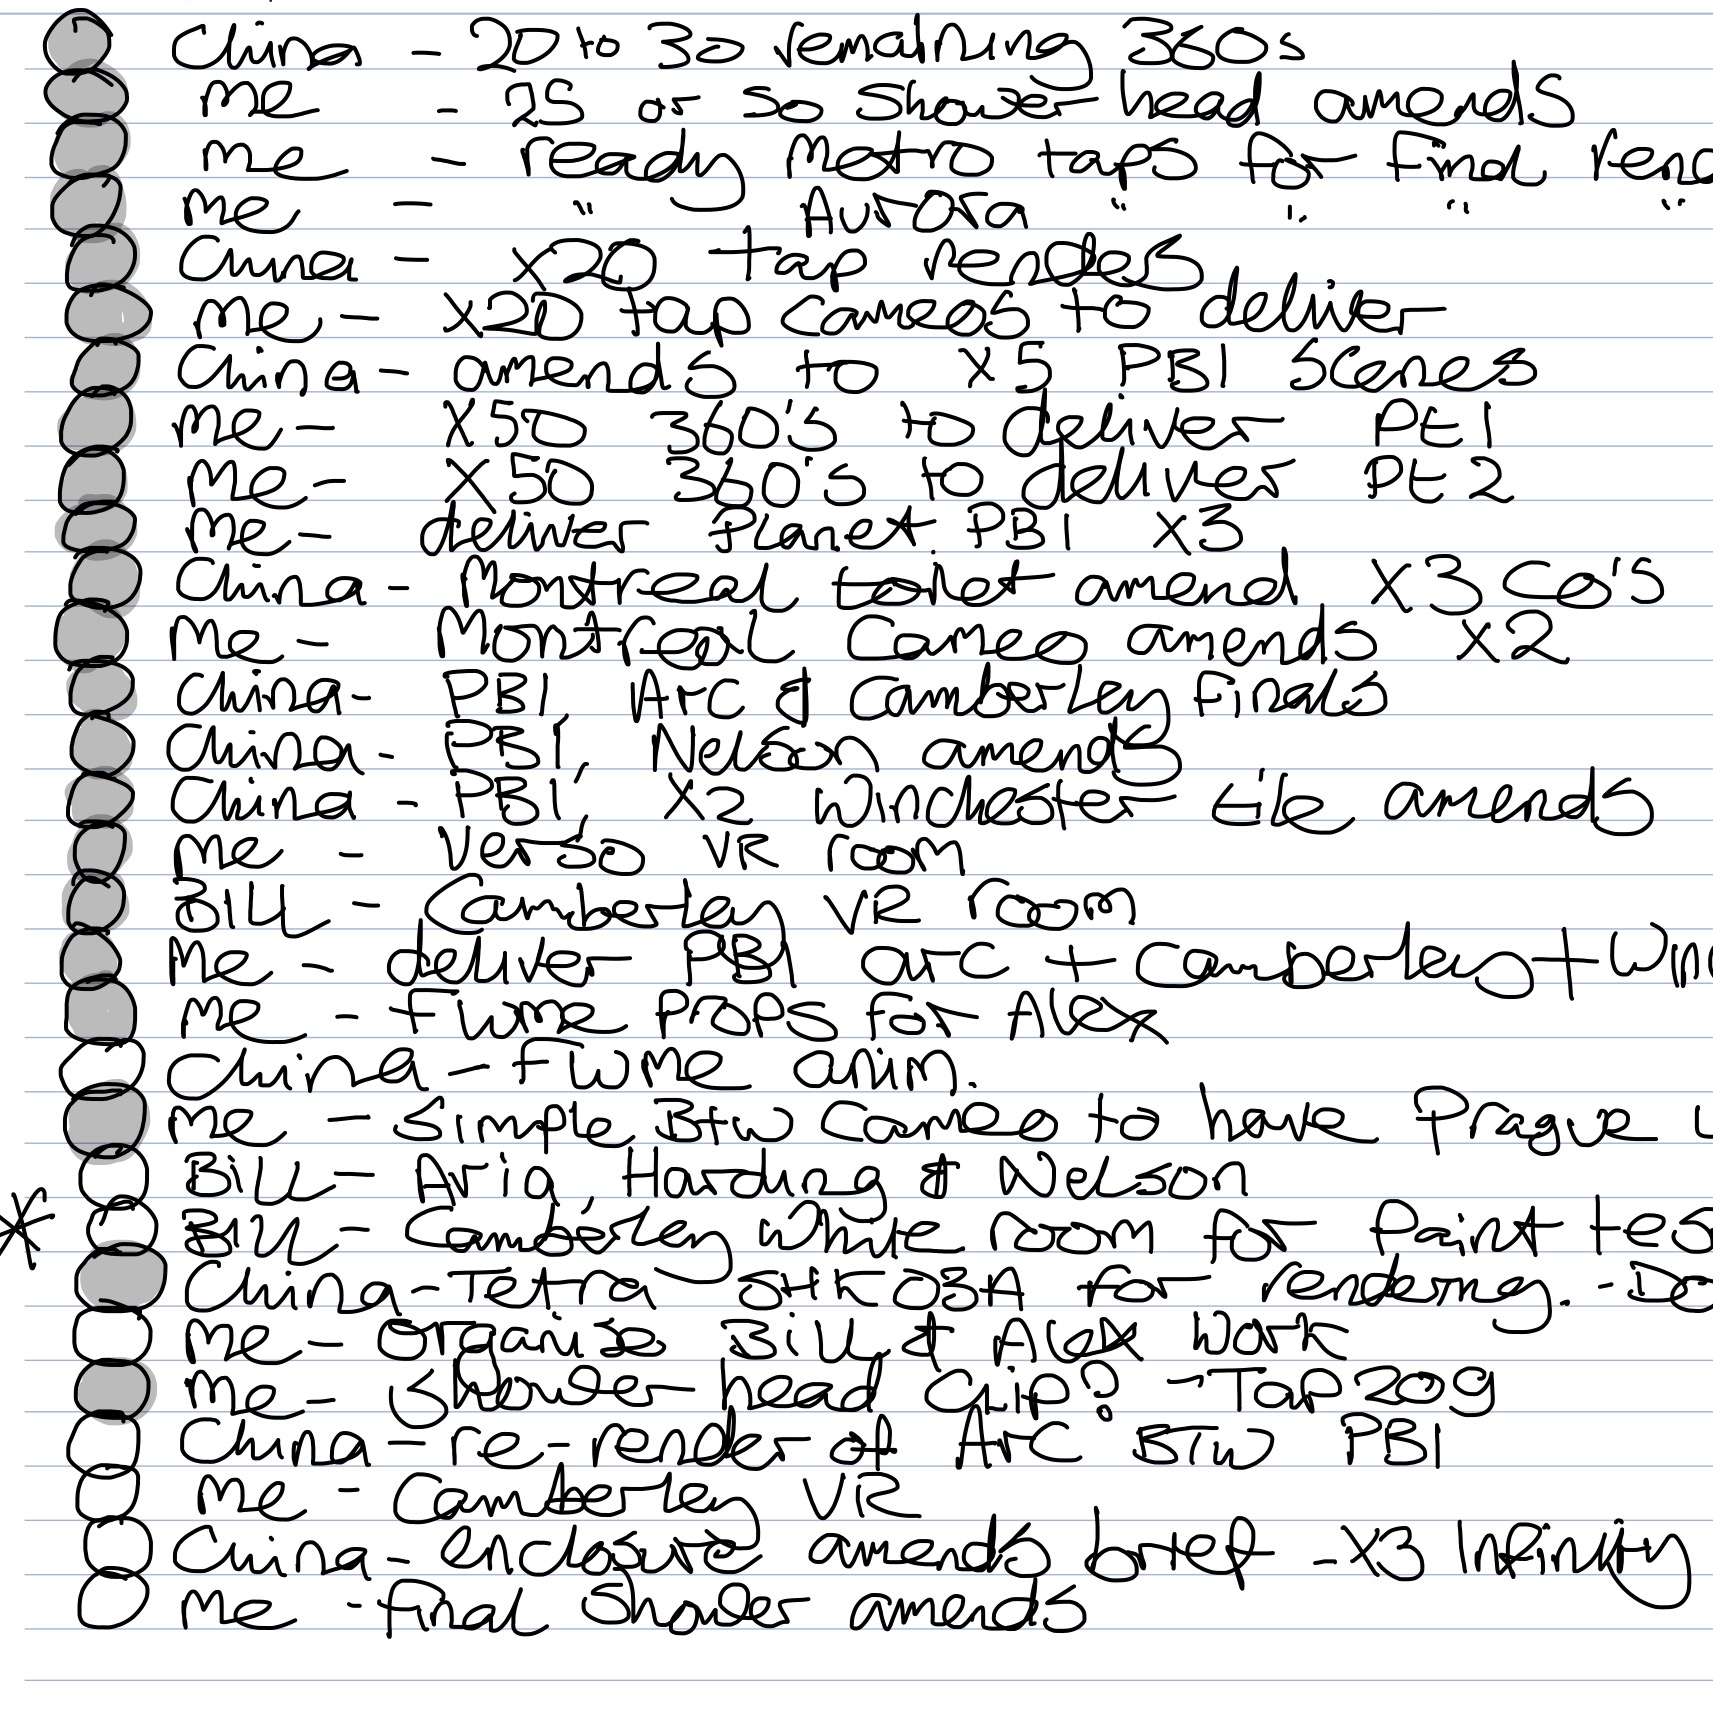 China - 20 to 30 remaining 360s
me - 25 or so shower head amends
me - ready Metro taps for final
me - " Aurora " " " "
China - x20 tap renders
me - x20 tap cameos to deliver
China - amends to x5 PB1 scenes
me - x50 360's to deliver Pt 1
me - x50 360's to deliver Pt 2
me - deliver Planet PB1 x3
China - Montreal toilet amend x3 Co's
me - Montreal Cameo amends x2
China - PB1, Arc & Camberley finals
China - PB1, Nelson amends
China - PB1, x2 Winchester tile amends
me - Verso VR room
Bill - Camberley VR room
Me - deliver PB1 arc + Camberley +
me - Flume props for Alex
China - Flume anim.
me - Simple BTW Cameo to have Prague
Bill - Aria, Harding & Nelson
* Bill - Camberley White room for Paint
China - Tetra SHK03A for rendering. -
me - organise Bill & Alex work
me - shower head clip? - Tap209
China - re-render of Arc BTW PB1
me - Camberley VR
China - enclosure amends brief - x3 Infinity
me - final shower amends